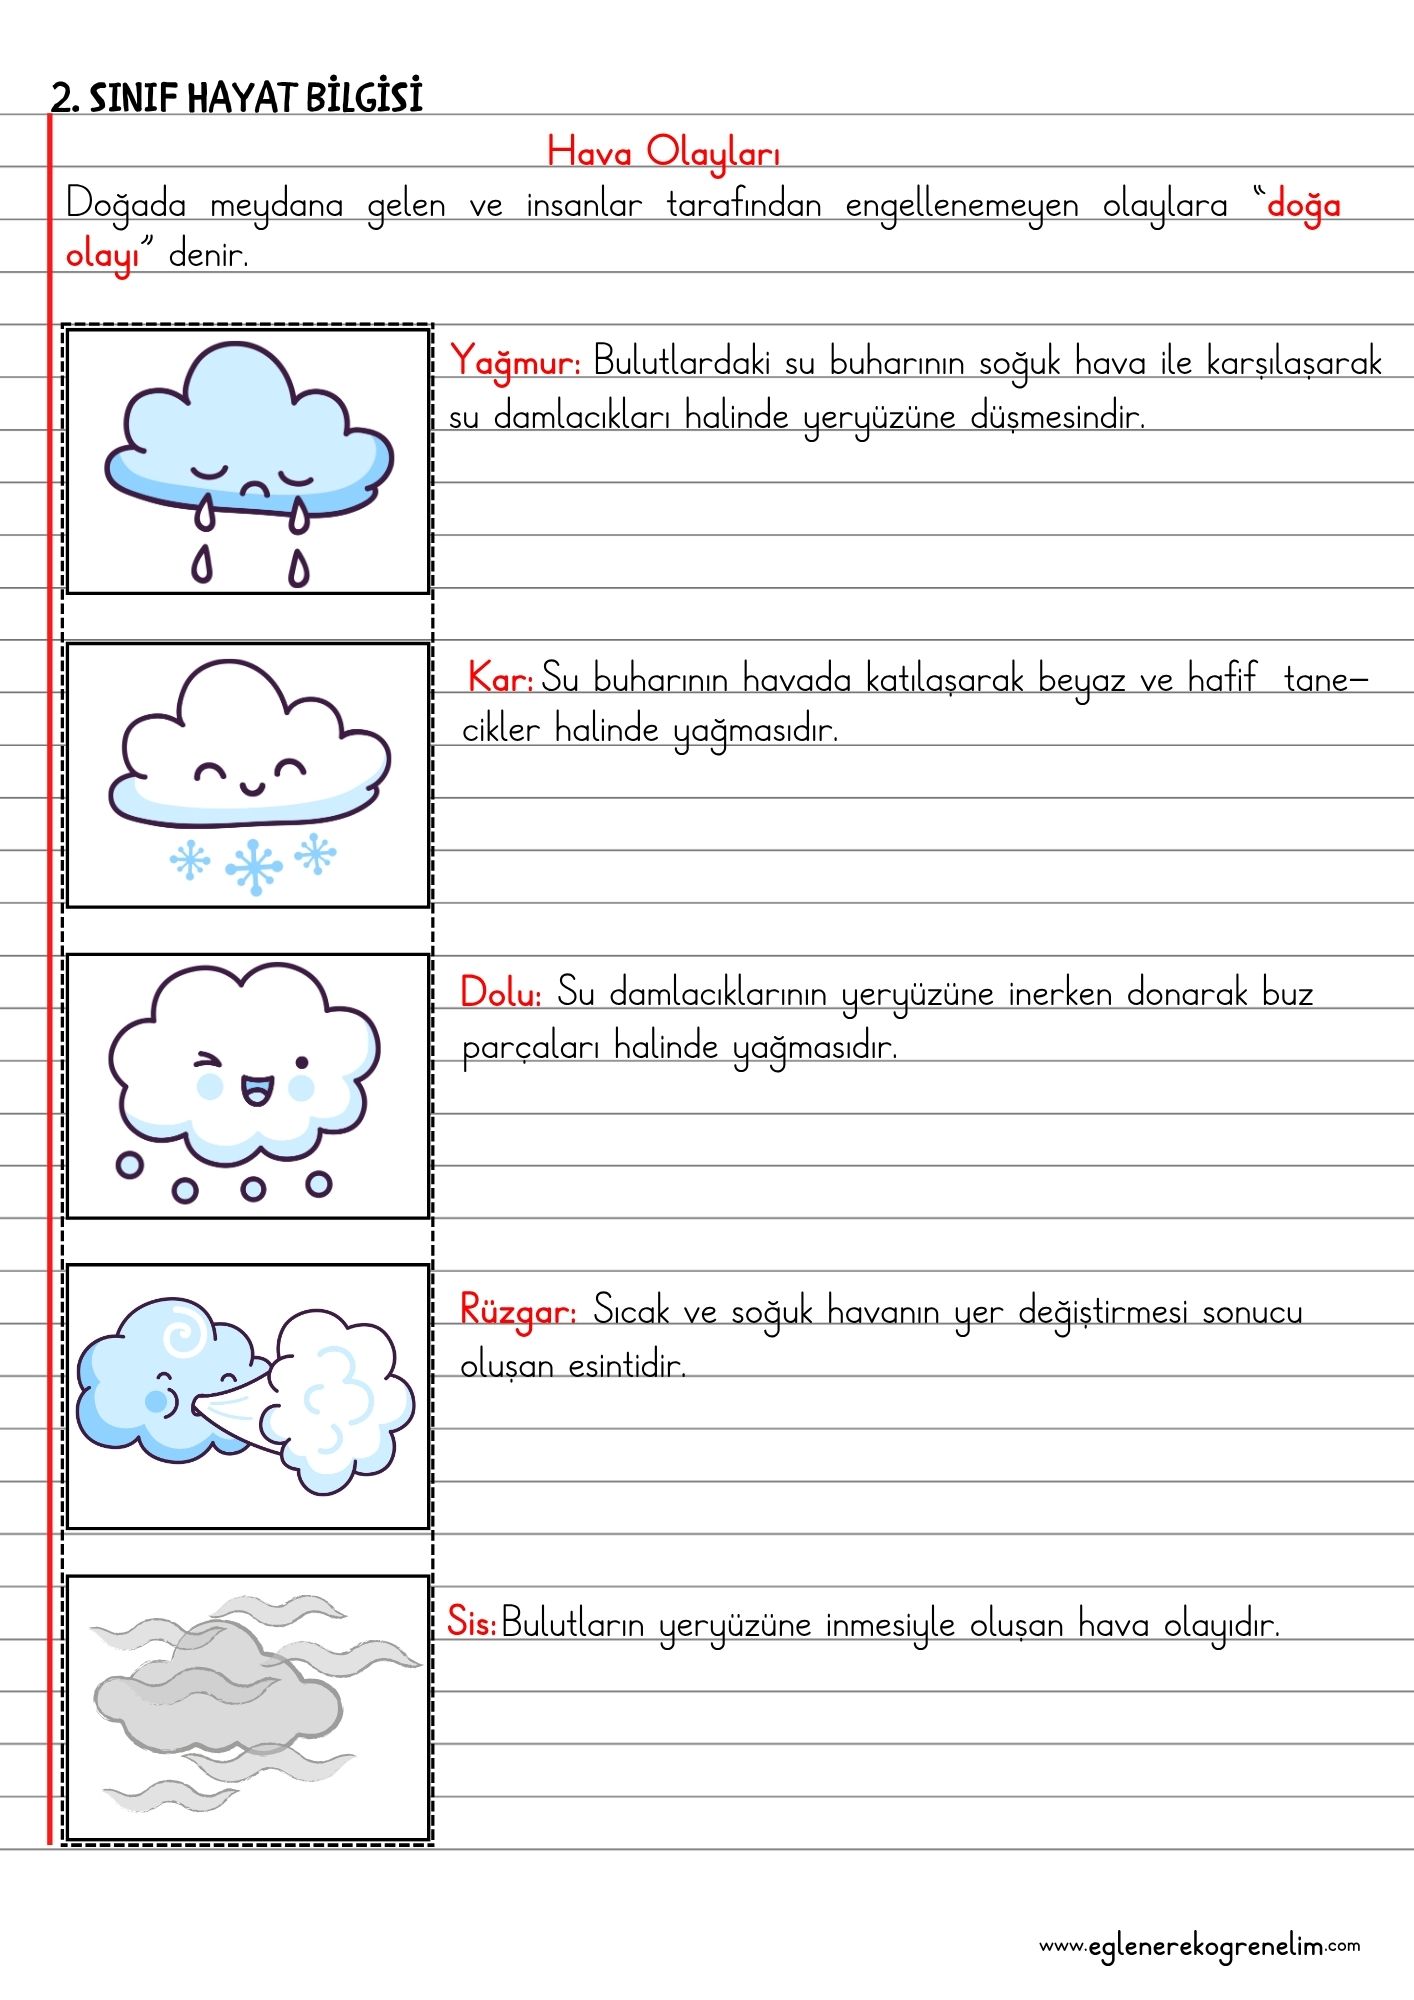 2. SINIF HAYAT BİLGİSİ
Hava Olayları
Doğada meydana gelen ve insanlar tarafından engellenemeyen olaylara “doğa
olayı” denir.
Yağmur: Bulutlardaki su buharının soğuk hava ile karşılaşarak
su damlacıkları halinde yeryüzüne düşmesindir.
Kar: Su buharının havada katılaşarak beyaz ve hafif tane-
cikler halinde yağmasıdır.
Dolu: Su damlacıklarının yeryüzüne inerken donarak buz
parçaları halinde yağmasıdır.
Rüzgar: Sıcak ve soğuk havanın yer değiştirmesi sonucu
oluşan esintidir.
Sis: Bulutların yeryüzüne inmesiyle oluşan hava olayıdır.
www.eglenerekogrenelim.com